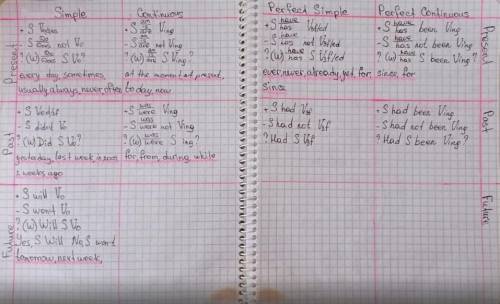 Simple
Continuous
Present
+ S V0/es
- S do does not V0
? (W) do does S V0?
every day, sometimes,
usually, always, never, often
+ S am is are Ving
- S am is are not Ving
? (W) am is are S Ving?
at the moment, at present,
to day, now
Past
+ S Ved/sf
- S didn't V0
? (W) Did S V0?
yesterday, last week, in 2001
2 weeks ago
+ S was were Ving
- S was were not Ving
? (W) was were S ing?
for, from, during, while
Future
+ S will V0
- S won't V0
? (W) Will S V0
Yes, S Will No, S won't
tomorrow, next week,
Perfect Simple
Perfect Continuous
+ S have has V3f/ed
- S have has not V3f/ed
? (W) have has S V3f/ed
ever, never, already, yet, for,
since
+ S have has been Ving
- S have has not been Ving
? (W) have has S been Ving?
since, for
Present
+ S had V3f
- S had not V3f
? Had S V3f
+ S had been Ving
- S had not been Ving
? Had S been Ving?
Past
Future